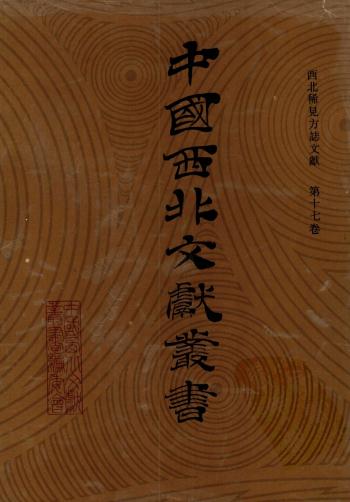 西北稀見方誌文獻 第十七卷
中國西北文獻叢書
中國西北文獻
叢書編委會